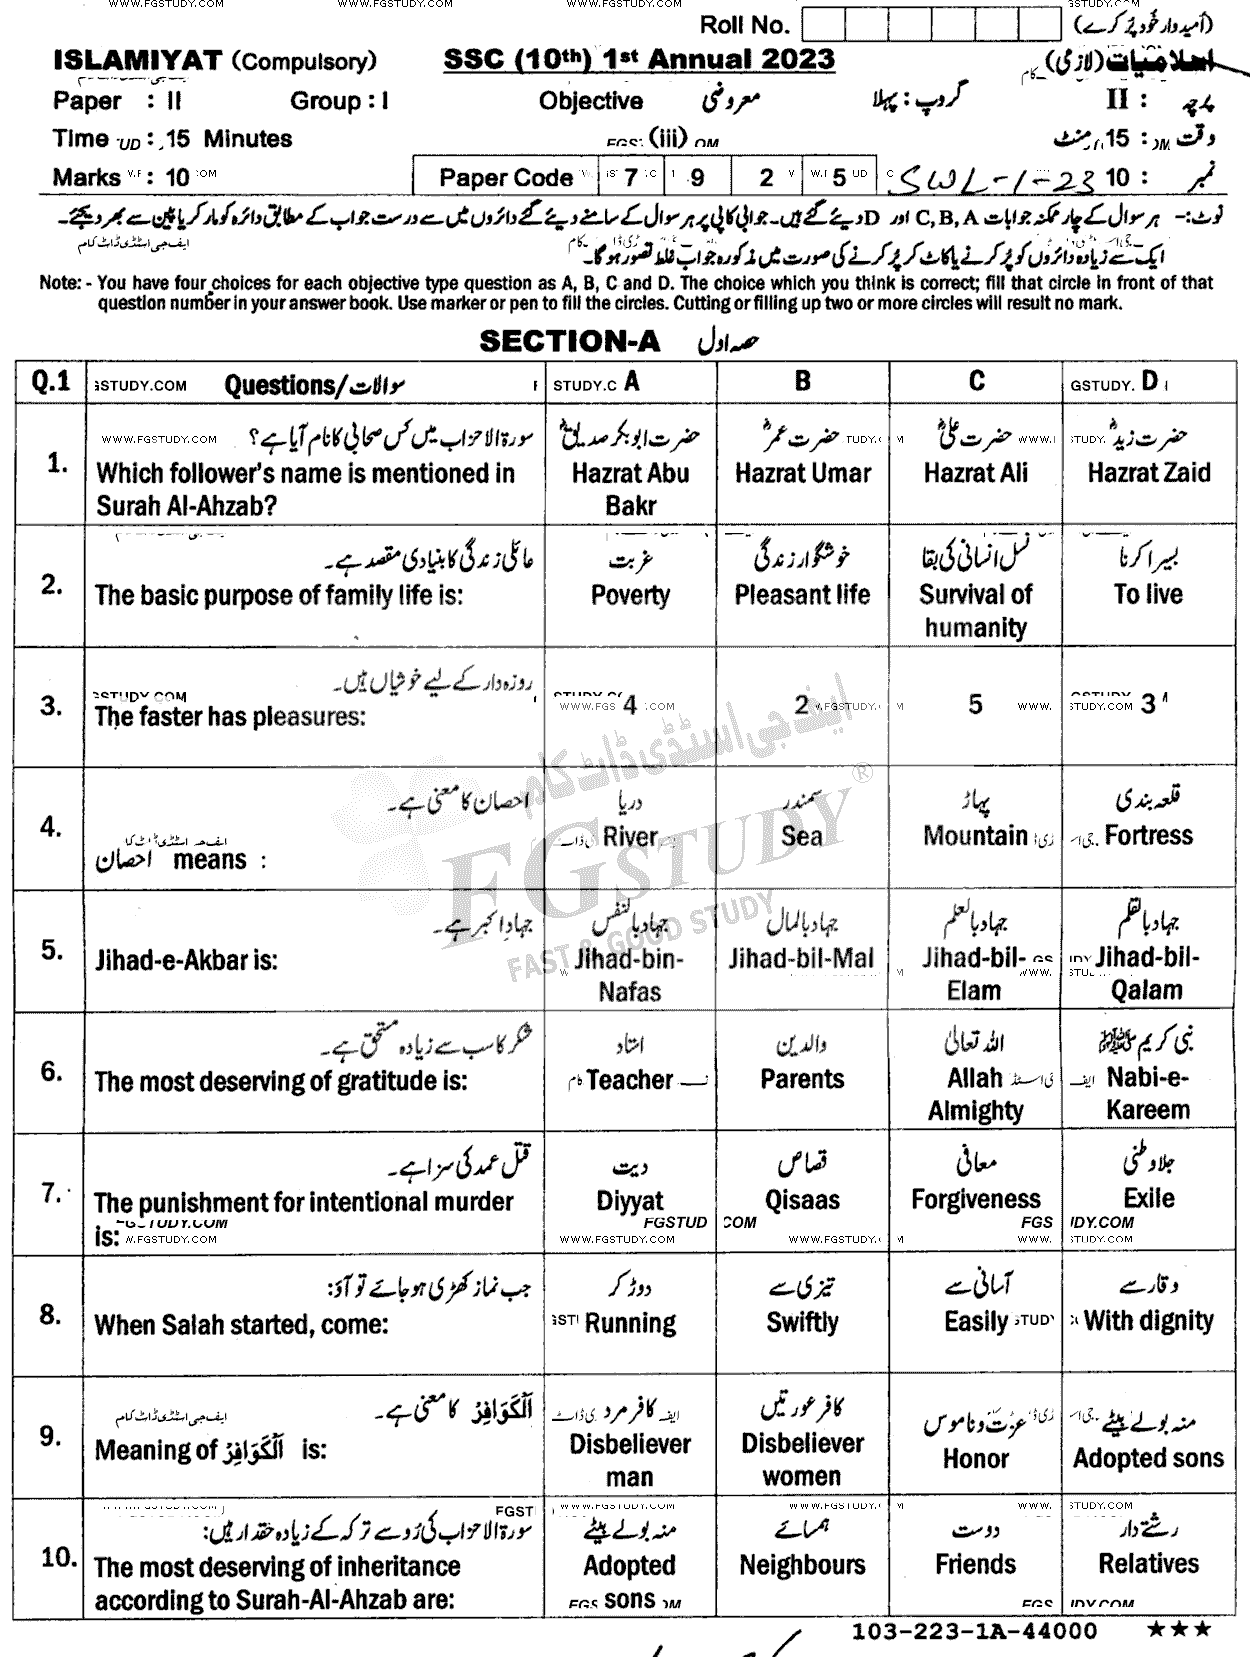 WWW.FGSTUDY.COM WWW.FGSTUDY.COM WWW.FGSTUDY.COM STUDY.COM
Roll No. (امیدوار خود پُر کرے)
ISLAMIYAT (Compulsory) SSC (10th) 1st Annual 2023 اسلامیات (لازمی)
Paper : II Group : I Objective معروضی گروپ : پہلا پرچہ : II
Time : 15 Minutes (iii) وقت : 15 منٹ
Marks : 10 Paper Code 7 9 2 5 SWL-1-23 نمبر : 10
نوٹ:- ہر سوال کے چار ممکنہ جوابات C, B, A اور D دیئے گئے ہیں۔ جوابی کاپی پر ہر سوال کے سامنے دیئے گئے دائروں میں سے درست جواب کے مطابق دائرہ کو مارکر یا پین سے بھر دیجئے۔
ایک سے زیادہ دائروں کو پُر کرنے یا کاٹ کر پُر کرنے کی صورت میں مذکورہ جواب غلط تصور ہو گا۔
Note: - You have four choices for each objective type question as A, B, C and D. The choice which you think is correct; fill that circle in front of that
question number in your answer book. Use marker or pen to fill the circles. Cutting or filling up two or more circles will result no mark.
SECTION-A حصہ اول
Q.1 Questions/سوالات A B C D
1. سورۃ الاحزاب میں کس صحابی کا نام آیا ہے؟ حضرت ابوبکر صدیقؓ حضرت عمرؓ حضرت علیؓ حضرت زیدؓ
Which follower's name is mentioned in Hazrat Abu Hazrat Umar Hazrat Ali Hazrat Zaid
Surah Al-Ahzab? Bakr
2. عائلی زندگی کا بنیادی مقصد ہے۔ غربت خوشگوار زندگی نسل انسانی کی بقا بسیرا کرنا
The basic purpose of family life is: Poverty Pleasant life Survival of To live
humanity
3. روزہ دار کے لیے خوشیاں ہیں۔
The faster has pleasures: 4 2 5 3
4. احصان کا معنی ہے۔ دریا سمندر پہاڑ قلعہ بندی
احصان means : River Sea Mountain Fortress
5. جہادِ اکبر ہے۔ جہاد بالنفس جہاد بالمال جہاد بالعلم جہاد بالقلم
Jihad-e-Akbar is: Jihad-bin- Jihad-bil-Mal Jihad-bil- Jihad-bil-
Nafas Elam Qalam
6. شکر کا سب سے زیادہ مستحق ہے۔ استاد والدین اللہ تعالیٰ نبی کریم ﷺ
The most deserving of gratitude is: Teacher Parents Allah Nabi-e-
Almighty Kareem
7. قتل عمد کی سزا ہے۔ دیت قصاص معافی جلاوطنی
The punishment for intentional murder Diyyat Qisaas Forgiveness Exile
is:
8. جب نماز کھڑی ہو جائے تو آؤ: دوڑ کر تیزی سے آسانی سے وقار سے
When Salah started, come: Running Swiftly Easily With dignity
9. اَلْكَوَافِرُ کا معنی ہے۔ کافر مرد کافر عورتیں عزت و ناموس منہ بولے بیٹے
Meaning of اَلْكَوَافِرُ is: Disbeliever Disbeliever Honor Adopted sons
man women
10. سورۃ الاحزاب کی رُو سے ترکہ کے زیادہ حقدار ہیں: منہ بولے بیٹے ہمسائے دوست رشتے دار
The most deserving of inheritance Adopted Neighbours Friends Relatives
according to Surah-Al-Ahzab are: sons
103-223-1A-44000 ★★★
ایف جی اسٹڈی ڈاٹ کام
FGSTUDY ®
FAST & GOOD STUDY